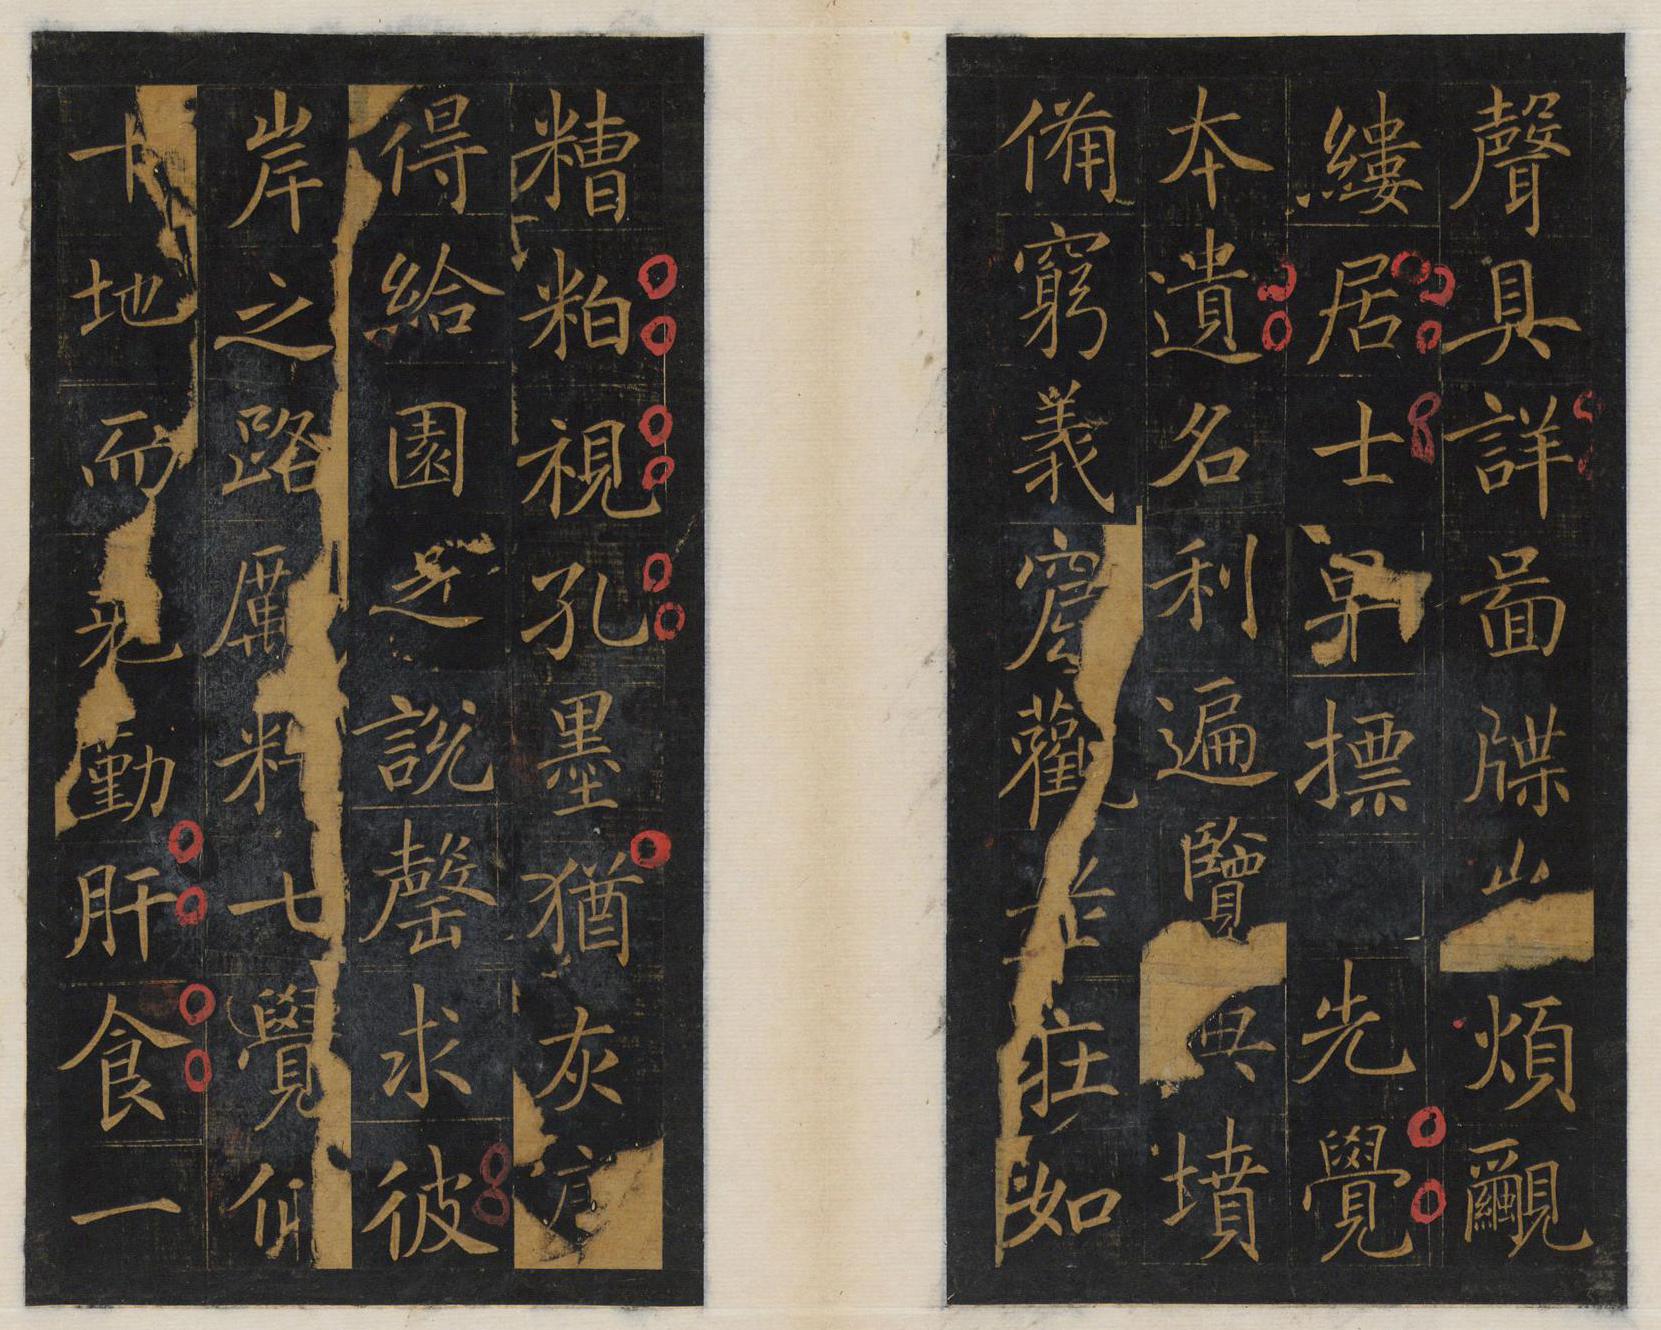 聲具詳啚牒煩覼
縷居士早標先覺
本遺名利遍覽典墳
備窮義窟觀老莊如
糟粕視孔墨猶灰
得給園之說罄求彼
岸之路厲精七覺仰
十地而克勤肝食一